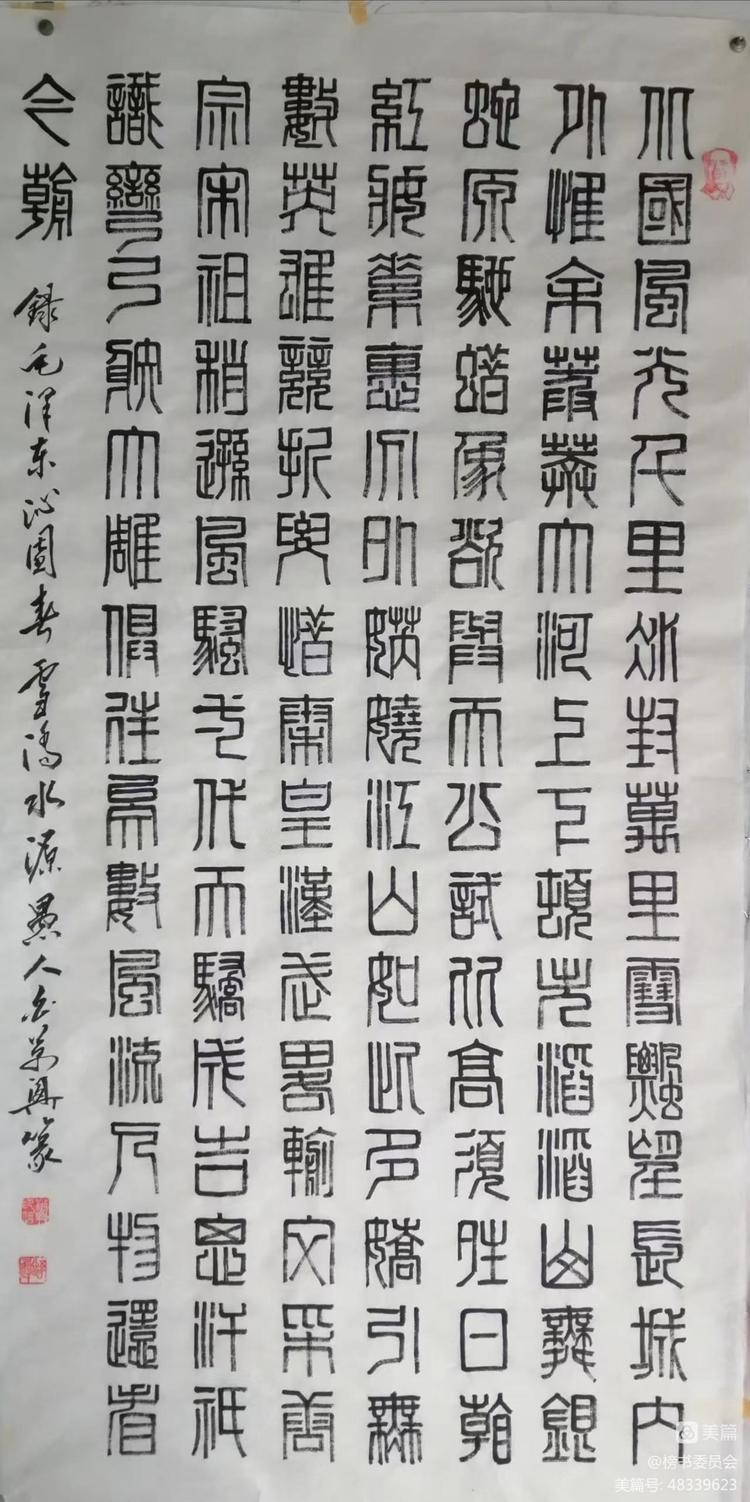 北國風光千里冰封萬里雪飄望長城內
外惟余莽莽大河上下頓失滔滔山舞銀
蛇原馳蜡象欲與天公試比高須晴日看
紅裝素裹分外妖嬈江山如此多嬌引無
數英雄競折腰惜秦皇漢武略輸文采唐
宗宋祖稍遜風騷一代天驕成吉思汗祇
識彎弓射大雕俱往矣數風流人物還看
今朝 錄毛泽东沁園春雪 水源愚人 篆
美篇
@榜书委员会
美篇号: 48339623